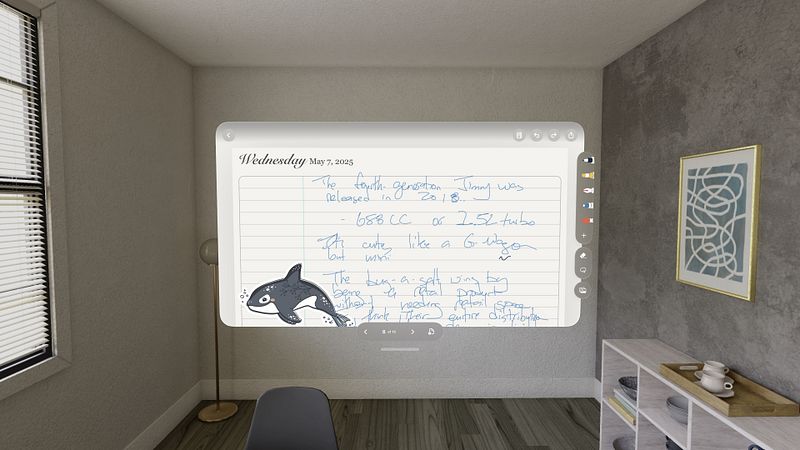 Wednesday May 7, 2025
The fourth-generation Jimny was
released in 2018..
- 658 CC or 1.5L turbo
It's cute, like a G-Wagon
but mini
The buy-a-gift using buy
being a retail product
without needing retail space
think their entire distribution